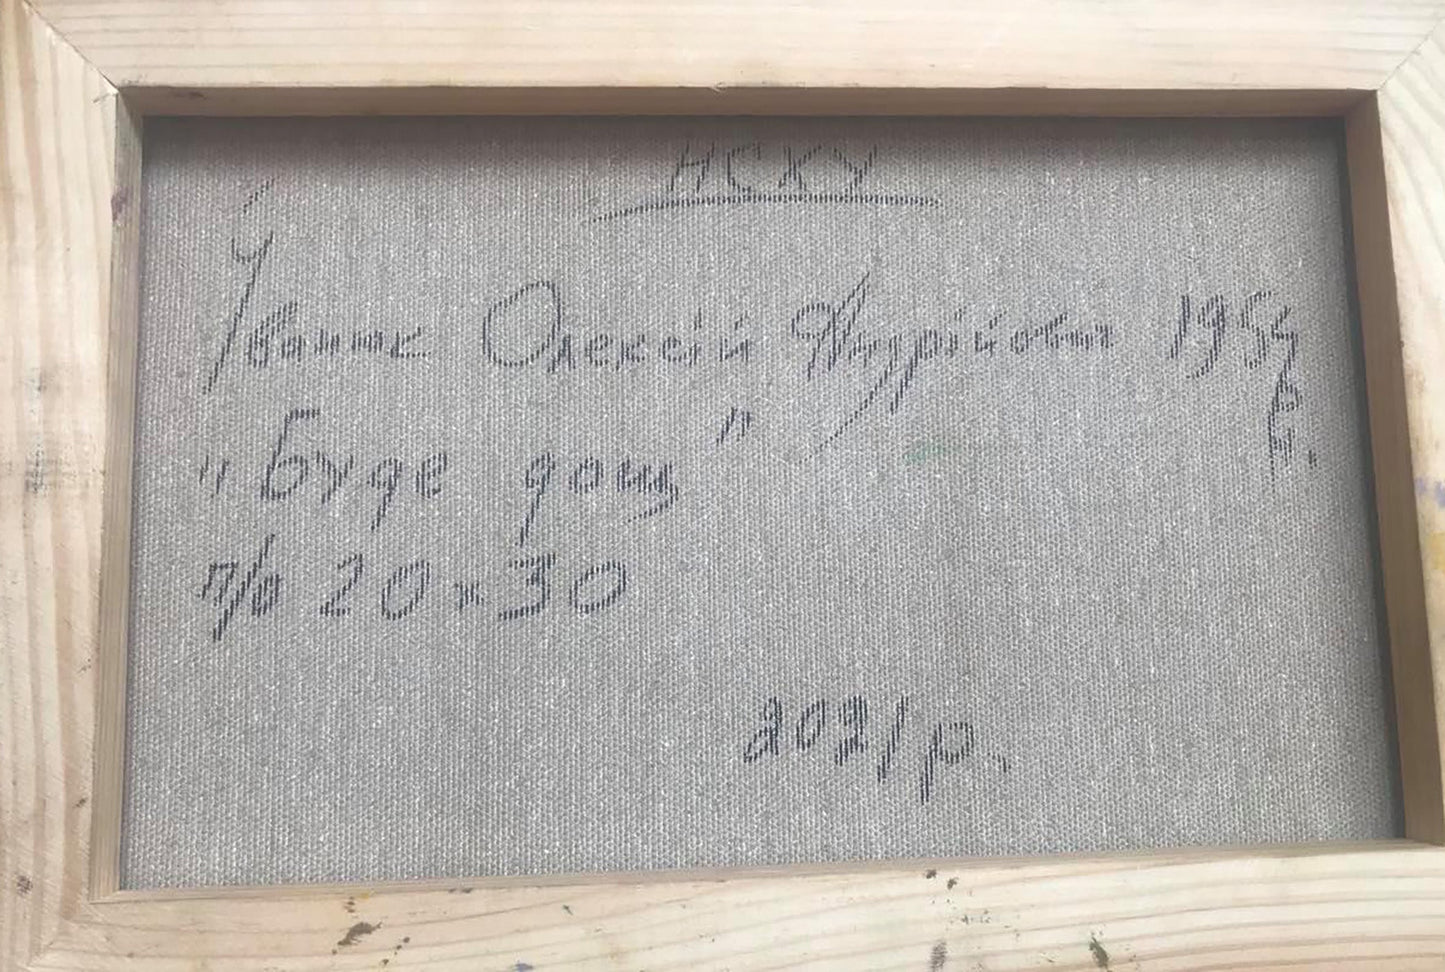 НСХУ
Іванюк Олексій Андрійович 1954 р.н.
"Буде дощ"
п/о 20х30
2021 р.